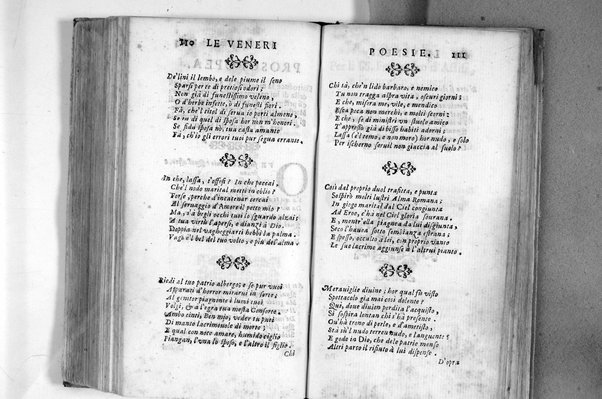 110 LE VENERI
De' lini il lembo, e dele piume il seno
Sparsi per te di pretiosi odori;
Non già di funestissimo veleno,
O d'herbe infette, o di funesti fiori.
Fà, che'l titol di serua io porti almeno,
Se tu di quel di sposa hor me n'honori.
Se sida sposa nò, tua casta amante
Fà, ch'io gli errori tuoi per segua errante.
In che, lassa, t'offesi? In che peccai,
Che'l nodo marital metti in oblio?
Forse, perche d'incatenar cercai
Al seruaggio d'Amore il petto mio?
Ma, s'à begli occhi tuoi lo sguardo alzai;
A tua virtù l'apersi, e diangl'à Dio.
Doppia nel vagheggiarti hebbi la palma.
Vagh'il bel del tuo volto, e più del'alma.
Riedi al tuo patrio albergo; e se pur vuoi
Apparati d'horror mirarui in sorte;
Al genitor piagnente i lucci tuoi
Volgi, & a l'egra tua mesta Consorte.
Ambo cinti, Ben mio, veder ci puoi
Di manto lacrimoso di morte;
E qual con noto amare, humido ciglio
Piangan, l'una lo sposo, e l'altro il figlio.
Chi
POESIE. 111
Chi sà, che'n lido barbaro, e nemico
Tu non tragga aspra vita, oscuri giorni;
E che, misera me, vile, e mendico
Esca poca non merchi, e molti scorni:
E che, se di ministri vn stuolo amico
T'appresto già di bisse habiti adorni;
Lassa (l'è temo, e non moro) hor nudo, e solo
Per ischermo seruil non giaccia al suolo?
Così dal proprio duol trafitta, e punta
Sospirò molti lustri Alma Romana;
In giogo marital dal Ciel congiunta
Ad Eroe, c'hà nel Ciel gloria sourana.
E, mentr'alla piagnea da lui disgiunta,
Seco l'hauea sotto sembianza estrana;
E spesso, occulto à lei, c'n proprio vanto
Le sue lacrime aggiunse à l'altrui pianto.
Merauiglie diuine; hor qual fù visto
Spettacolo già mai così dolente?
Qui, doue diuien perdita l'acquisto,
Si sospira lontan chi s'hà presente.
Qu'hà trono di perle, e d'ametisto,
Stà in'l nudo terren nudo, e languente:
E gode in Dio, che dele patrie mense
Altri parte il rifiuto à lui dispense.
D'opra